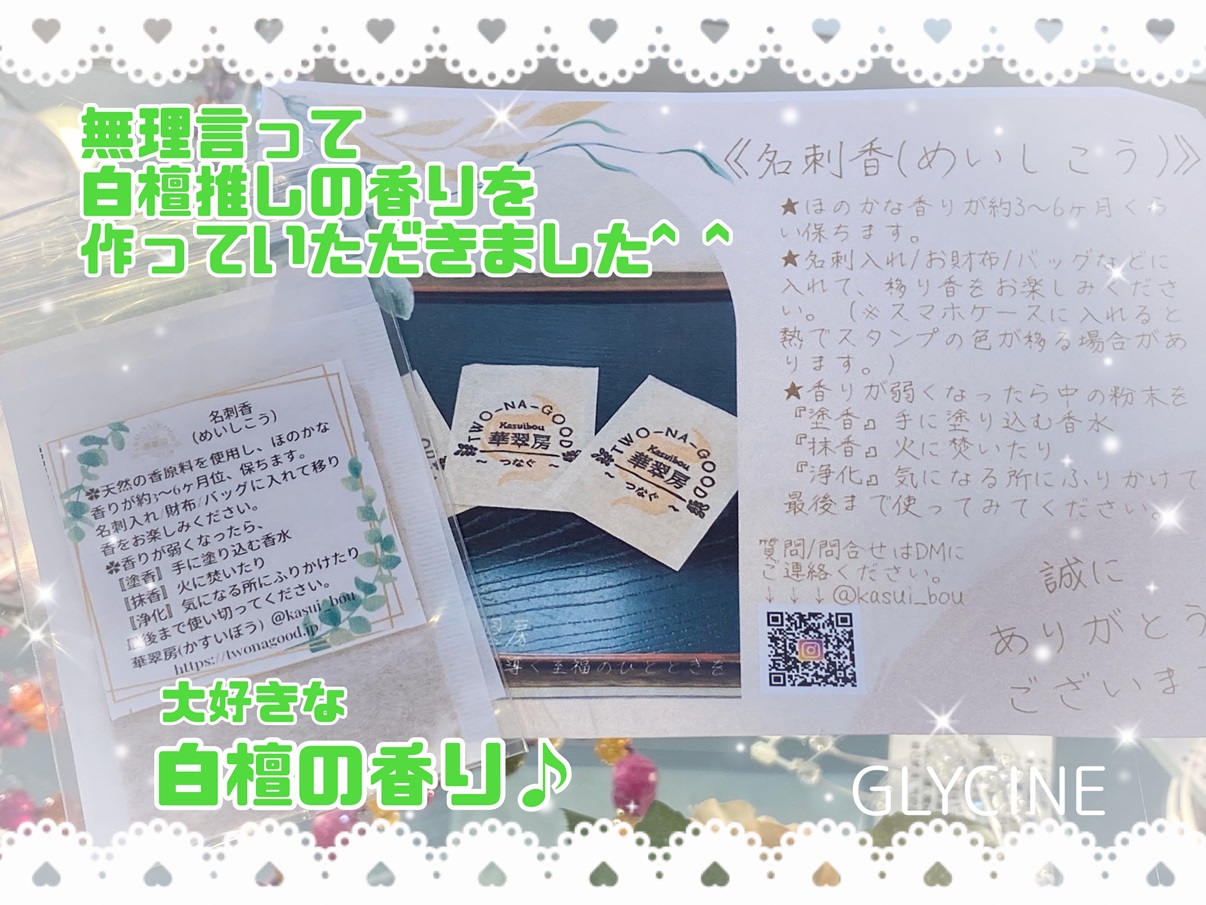 無理言って
白檀推しの香りを
作っていただきました^ ^
《名刺香(めいしこう)》
★ほのかな香りが約3〜6ヶ月くら
い保ちます。
★名刺入れ/お財布/バッグなどに
入れて、移り香をお楽しみくださ
い。(※スマホケースに入れると
熱でスタンプの色が移る場合があ
ります。)
★香りが弱くなったら中の粉末を
『塗香』手に塗り込む香水
『抹香』火に焚いたり
『浄化』気になる所にふりかけて
最後まで使ってみてください。
質問/問合せはDMに
ご連絡ください。
↓↓↓@kasui_bou
誠に
ありがとう
ございま
TWO-NA-GOOD
Kasuibou
華翠房
〜 つなぐ 〜
TWO-NA-GOOD
Kasuibou
華翠房
〜 つなぐ 〜
房
導く至福のひとときを
名刺香
(めいしこう)
✽天然の香原料を使用し、ほのかな
香りが約3〜6ヶ月位、保ちます。
名刺入れ/財布/バッグに入れて移り
香をお楽しみください。
✽香りが弱くなったら、
『塗香』手に塗り込む香水
『抹香』火に焚いたり
『浄化』気になる所にふりかけたり
最後まで使い切ってください。
華翠房(かすいぼう) @kasui_bou
https://twonagood.jp
大好きな
白檀の香り♪
GLYCINE